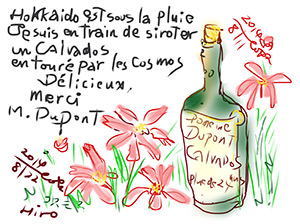 Hokkaido est sous la pluie
Je suis en train de siroter
un Calvados
entouré par les cosmos
Délicieux,
Merci
M. Dupont
2014
8/11
Domaine
Dupont
Calvados
Plus de 24 ans
2014
8/22
Hiro